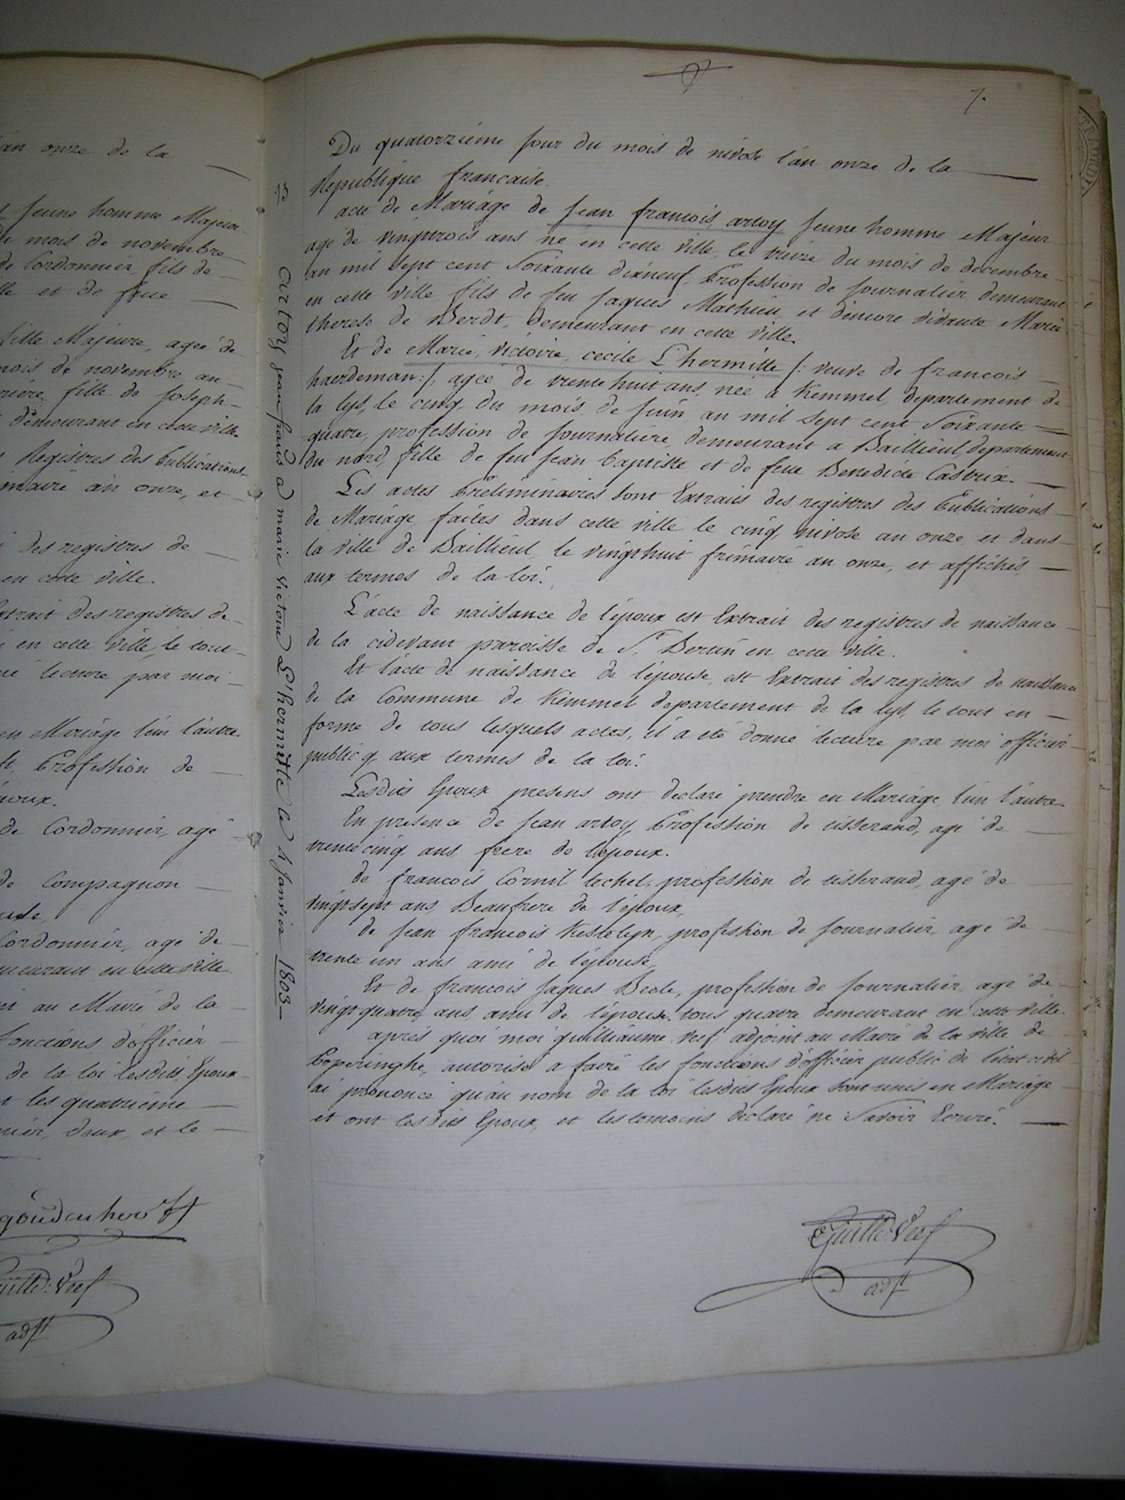 7.
Du quatorzième jour du mois de nivôse l'an onze de la
Republique francaise.
acte de Mariage de jean francois artoy jeune homme Majeur
agé de vingttrois ans né en cette ville, le treize du mois de decembre
an mil sept cent Soixante dixneuf, Profession de journalier demeurant
en cette ville fils de feu jaques Mathieu et d'encore vivante Marie
therese de Berdt, demeurant en cette ville.
Et de Marie, victoire, cecile L'hermitte /: veuve de francois
haerdeman :/, agée de trente huit ans, née a Kemmel departement de
la lys, le cinq du mois de juin an mil sept cent Soixante
quatre, profession de journalière, demeurant a Baillieul departement
du nord, fille de feu jean baptiste et de feue Benedicte Castrix.
Les actes Preliminaires sont Extraits des registres des Publications
de Mariage, faites dans cette ville le cinq nivose an onze, et dans
la ville de Baillieul, le vingthuit frimaire an onze, et affichés
aux termes de la loi.
L'acte de naissance de l'époux est Extrait des registres de naissance
de la cidevant paroisse de St. Bertin en cette ville.
Et l'acte de naissance de l'épouse, est Extrait des registres de naissance
de la Commune de Kemmel departement de la lys, le tout en
forme de tous lesquels actes, il a eté donné lecture par moi officier
public q. aux termes de la loi.
Lesdits Epoux presens ont declaré prendre en Mariage l'un l'autre.
En presence de jean artoy Profession de tisserand, agé de
trente cinq ans frere de l'epoux.
de francois Cornil techel, profession de tisserand, agé de
vingtsept ans, Beaufrere de l'époux,
de jean francois Kestelyn, profession de journalier, agé de
trente un ans ami de l'épouse,
Et de francois jaques Beele, profession de journalier, agé de
vingtquatre ans ami de l'épouse. tous quatre demeurant en cette ville.
après quoi moi guilliaume vref adjoint au Maire de la ville de
Poperinghe, autorisé a faire les fonctions d'officier public de l'état civil
ai prononcé qu'au nom de la loi lesdits Epoux sont unis en Mariage
et ont lesdits Epoux, et les temoins declaré ne Savoir Ecrire.
Guille. Vref
adjt
artoy jean frans a marie victoire L'hermitte le 4 janvier 1803
an onze de la
jeune homme Majeur
mois de novembre
de Cordonnier, fils de
et de feue
fille Majeure, agée de
mois de novembre an
fille de joseph
demeurant en cette ville.
Registres des Publications
an onze, et
des registres de
en cette ville.
Extrait des registres de
en cette ville, le tout
lecture par moi
en Mariage l'un l'autre.
Profession de
époux.
de Cordonnier, agé
de Compagnon
Cordonnier, agé de
demeurant en cette ville
au Maire de la
fonctions d'officier
de la loi lesdits Epoux
les quatrième
deux, et le
Guille. Vref
adjt